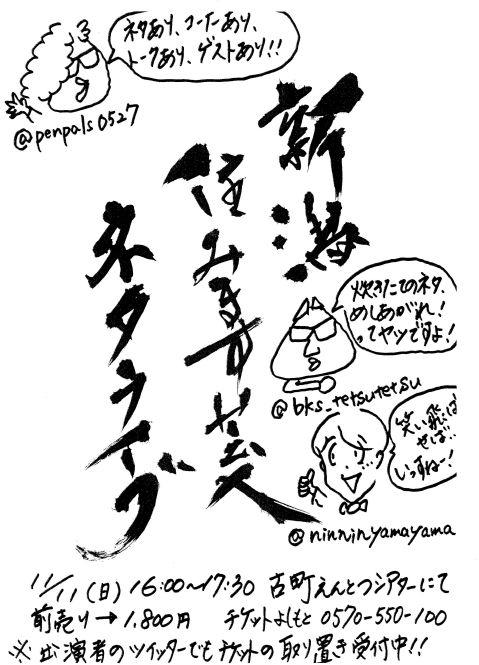 ネタあり、コーナーあり、
トークあり、ゲストあり!!
@penpals0527
新潟
住みます芸人
ネタライブ
炊きたてのネタ、
めしあがれ!
ってヤツですよ!
@bks_tetsutetsu
笑い飛ば
せば…
いっすねー!
@ninninyamayama
11/11(日) 16:00〜17:30 古町えんとつシアターにて
前売り→1,800円 チケットよしもと 0570-550-100
※出演者のツイッターでもチケットの取り置き受付中!!